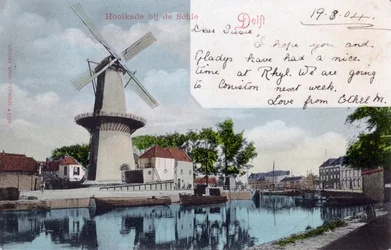 Hooikade bij de Schie
Delft
19.8.04.
Dear Susie
I hope you and
Gladys have had a nice
time at Rhyl. We are going
to Coniston next week.
Love from Ethel M.